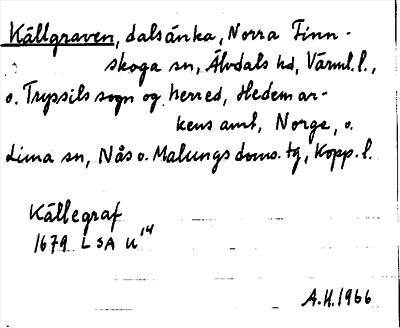 Källgraven, dalsänka, Norra Finn-
skoga sn, Älvdals hd, Värml. l.,
o. Trysils sogn og herred, Hedemar-
kens amt, Norge, o.
Lima sn, Nås o. Malungs doms. tg, Kopp. l.
Källegraf
1679 LSA U 14
A.H. 1966